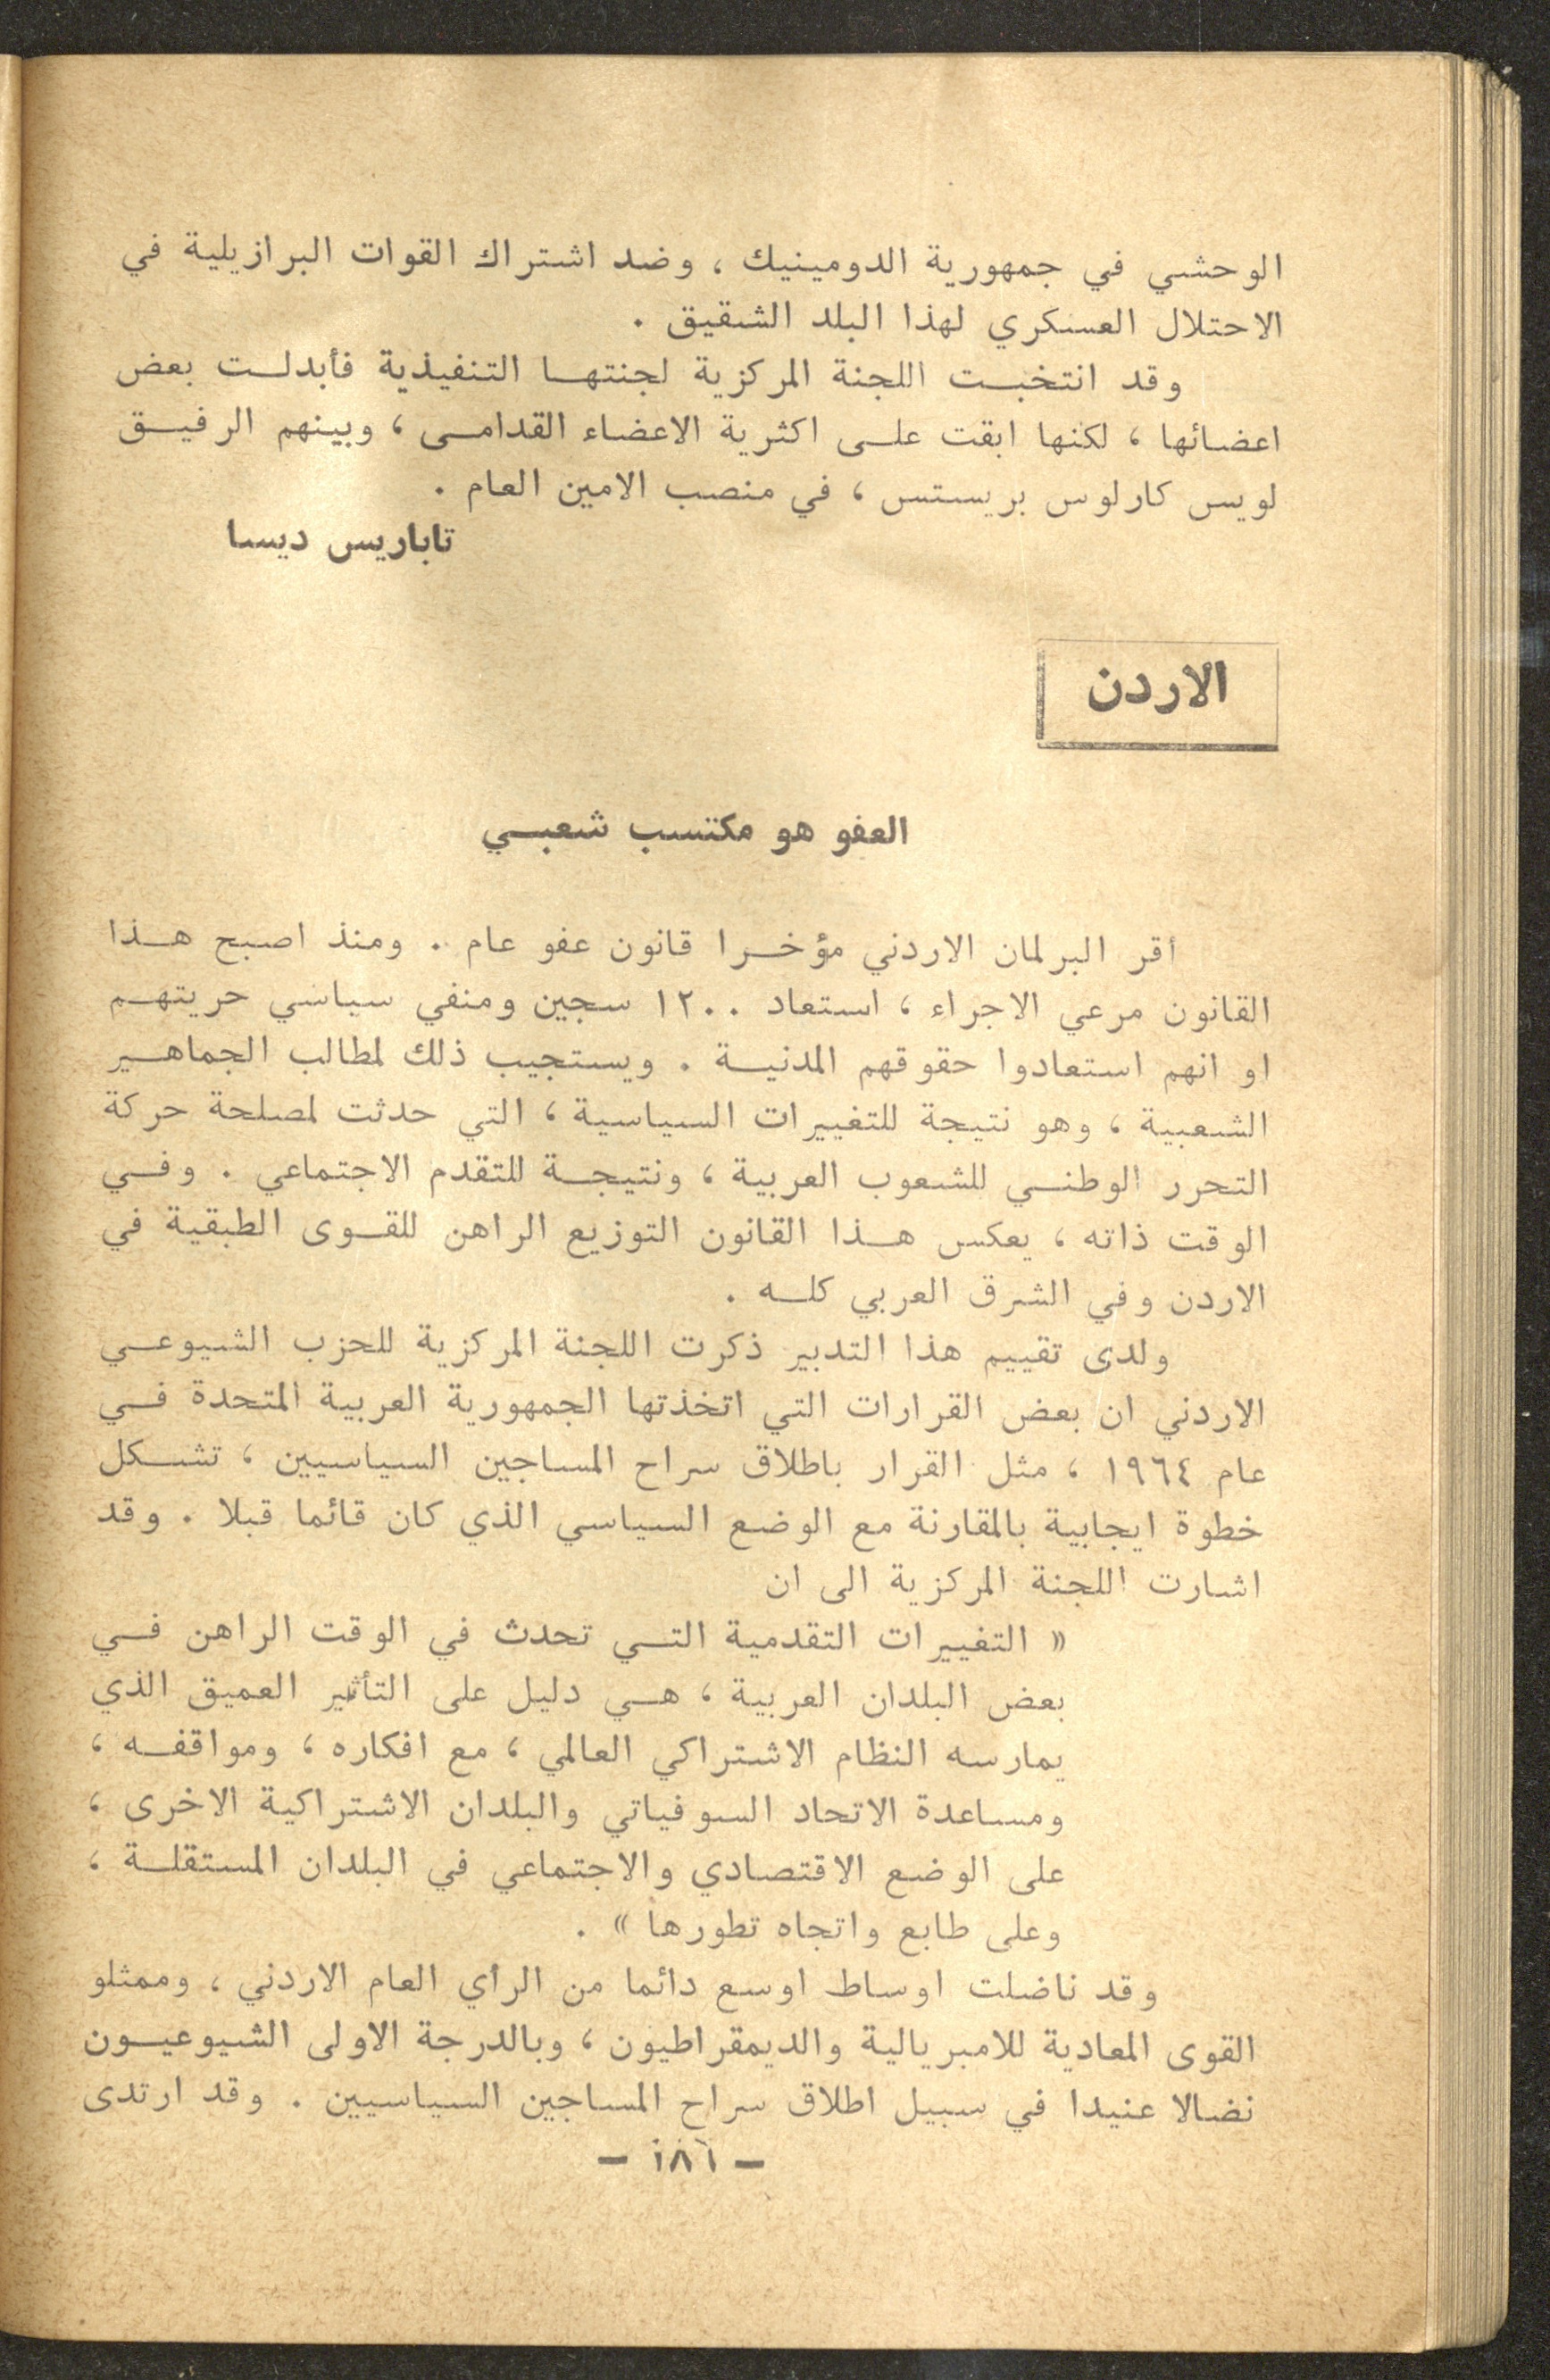 الوحشي في جمهورية الدومينيك ، وضد اشتراك القوات البرازيلية في
الاحتلال العسكري لهذا البلد الشقيق .
وقد انتخبت اللجنة المركزية لجنتها التنفيذية فأبدلت بعض
اعضائها ، لكنها ابقت على اكثرية الاعضاء القدامى ، وبينهم الرفيق
لويس كارلوس بريستس ، في منصب الامين العام .
تاباريس ديسا
الاردن
العفو هو مكتسب شعبي
أقر البرلمان الاردني مؤخرا قانون عفو عام . ومنذ اصبح هذا
القانون مرعي الاجراء ، استعاد ١٢٠٠ سجين ومنفي سياسي حريتهم
او انهم استعادوا حقوقهم المدنية . ويستجيب ذلك لمطالب الجماهير
الشعبية ، وهو نتيجة للتغييرات السياسية ، التي حدثت لمصلحة حركة
التحرر الوطني للشعوب العربية ، ونتيجة للتقدم الاجتماعي . وفي
الوقت ذاته ، يعكس هذا القانون التوزيع الراهن للقوى الطبقية في
الاردن وفي الشرق العربي كله .
ولدى تقييم هذا التدبير ذكرت اللجنة المركزية للحزب الشيوعي
الاردني ان بعض القرارات التي اتخذتها الجمهورية العربية المتحدة في
عام ١٩٦٤ ، مثل القرار باطلاق سراح المساجين السياسيين ، تشكل
خطوة ايجابية بالمقارنة مع الوضع السياسي الذي كان قائما قبلا . وقد
اشارت اللجنة المركزية الى ان
« التغييرات التقدمية التي تحدث في الوقت الراهن في
بعض البلدان العربية ، هي دليل على التأثير العميق الذي
يمارسه النظام الاشتراكي العالمي ، مع افكاره ، ومواقفه ،
ومساعدة الاتحاد السوفياتي والبلدان الاشتراكية الاخرى ،
على الوضع الاقتصادي والاجتماعي في البلدان المستقلة ،
وعلى طابع واتجاه تطورها » .
وقد ناضلت اوساط اوسع دائما من الرأي العام الاردني ، وممثلو
القوى المعادية للامبريالية والديمقراطيون ، وبالدرجة الاولى الشيوعيون
نضالا عنيدا في سبيل اطلاق سراح المساجين السياسيين . وقد ارتدى
– ١٨٦ –